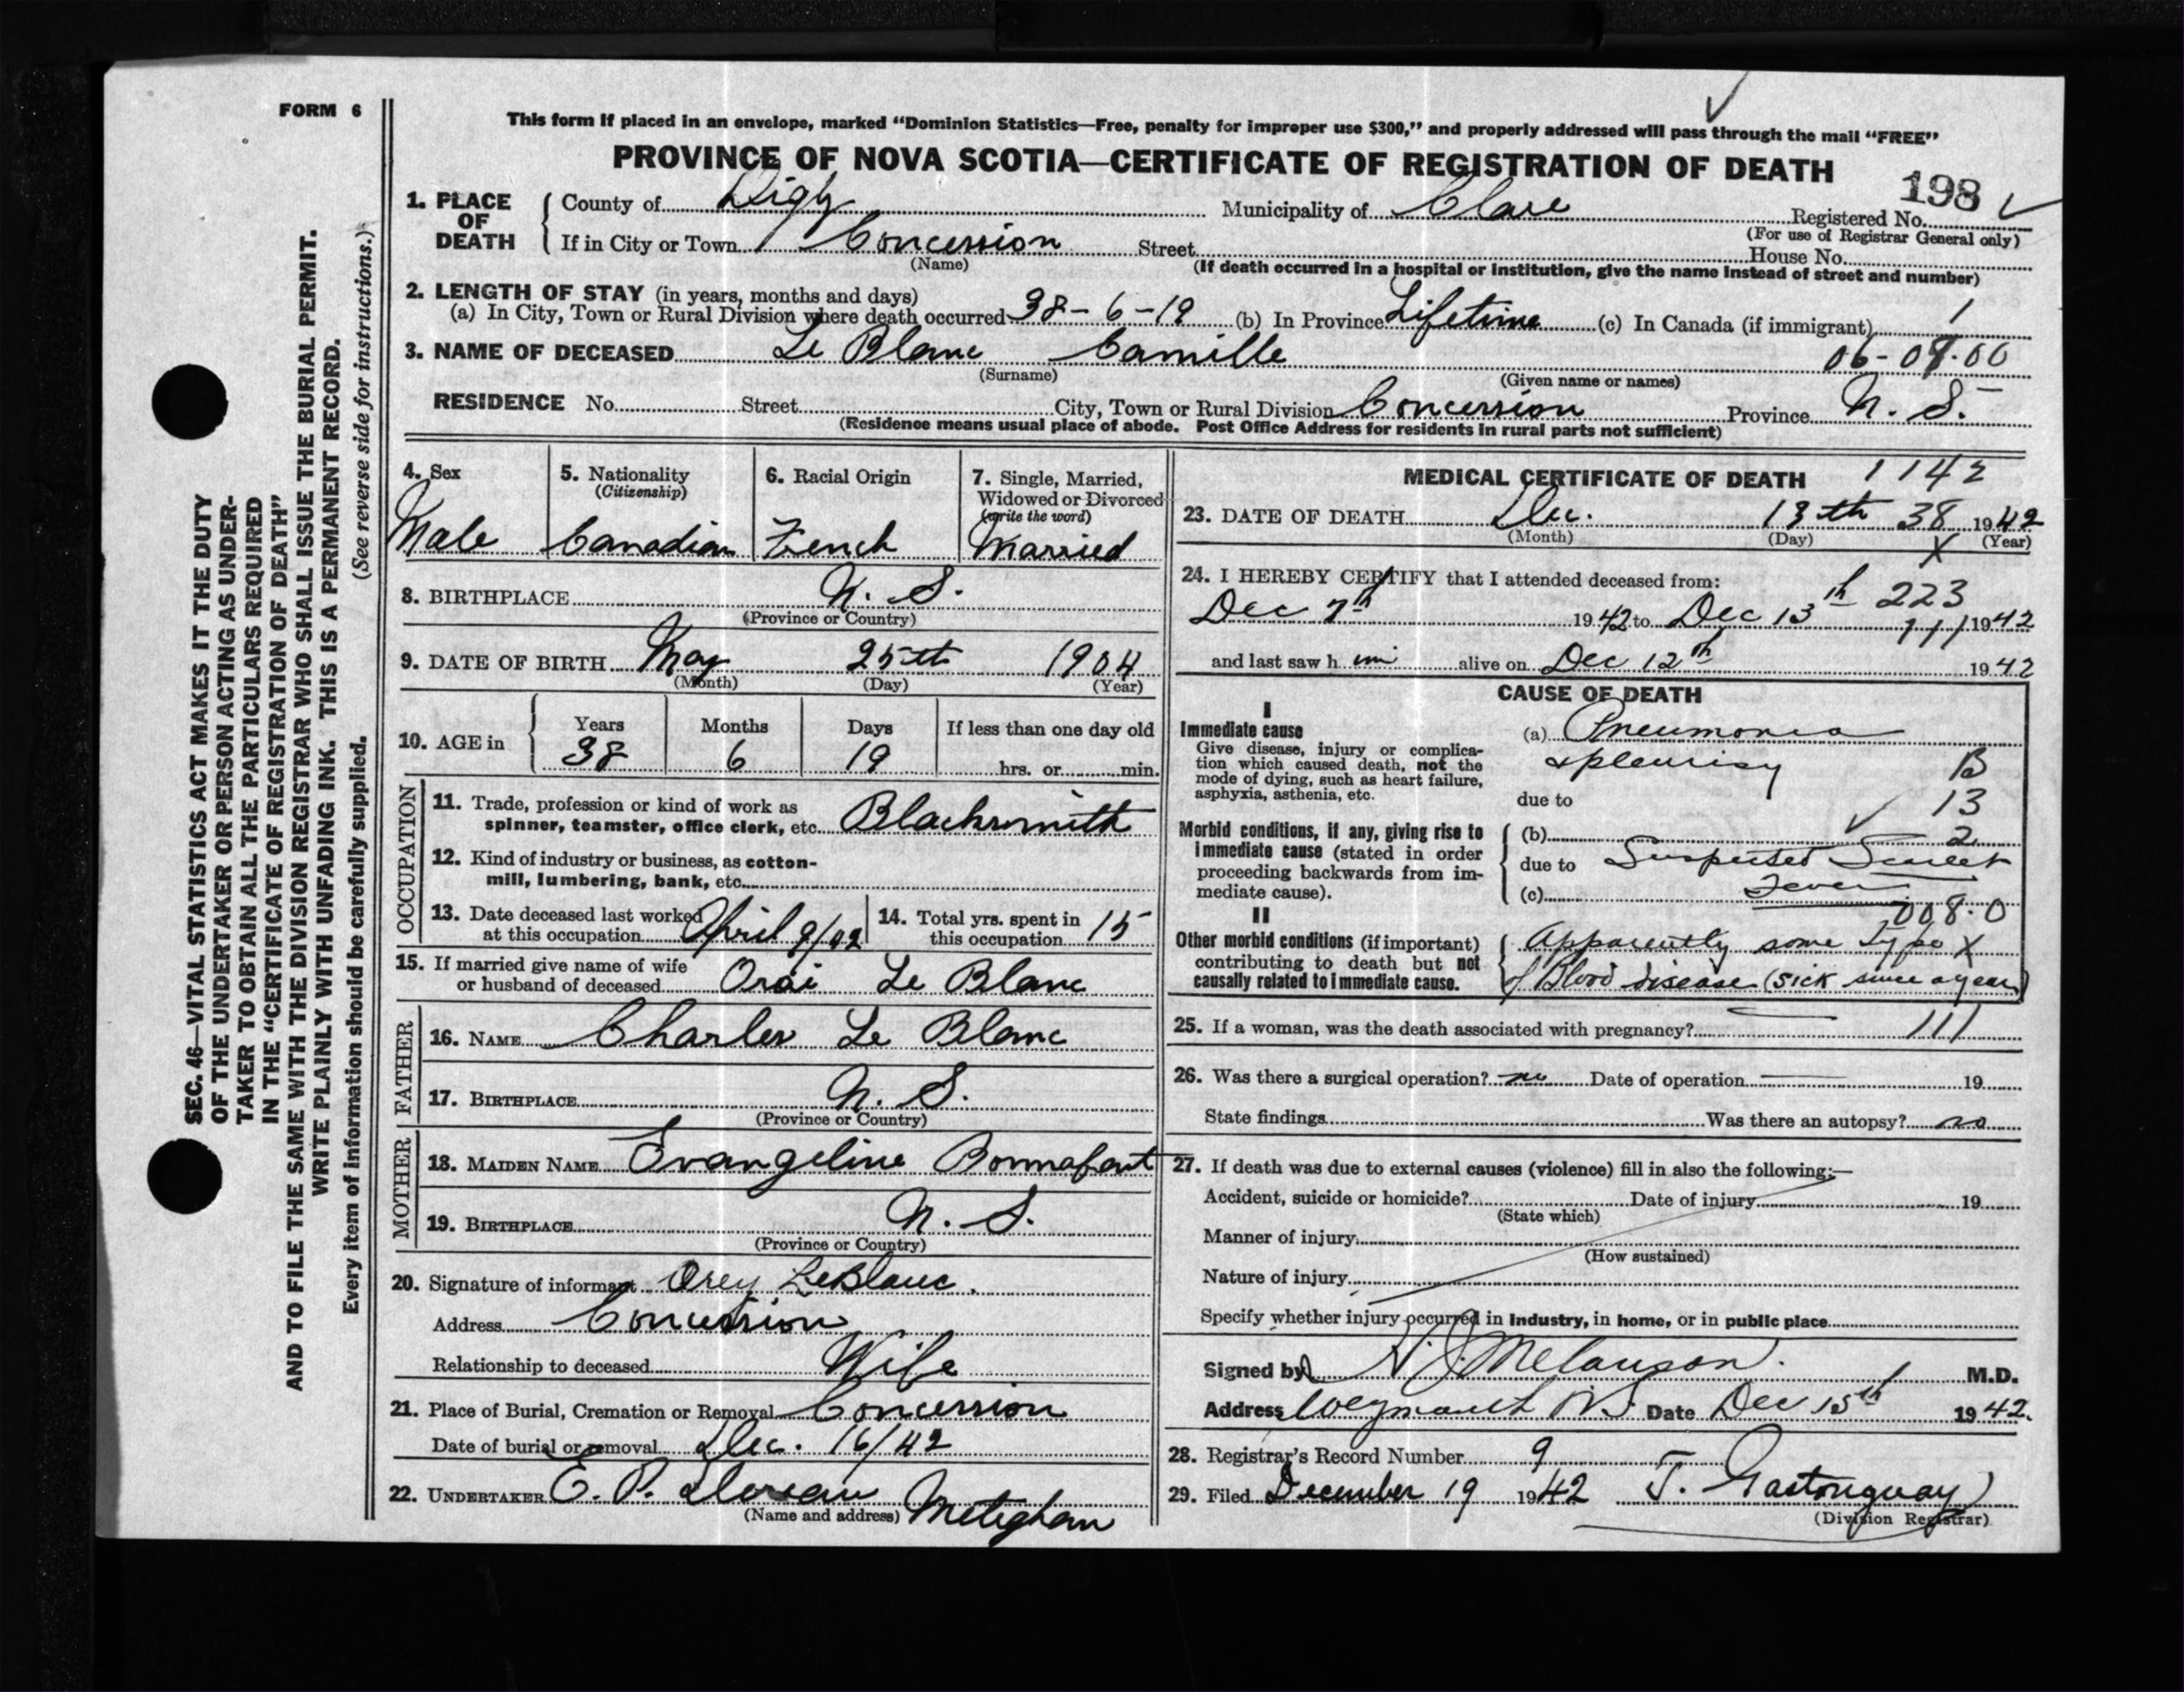 FORM 6
This form if placed in an envelope, marked “Dominion Statistics—Free, penalty for improper use $300,” and properly addressed will pass through the mail “FREE”
PROVINCE OF NOVA SCOTIA—CERTIFICATE OF REGISTRATION OF DEATH
198
1. PLACE OF DEATH County of Digby Municipality of Clare Registered No.
(For use of Registrar General only)
If in City or Town Concession Street House No.
(Name) (If death occurred in a hospital or institution, give the name instead of street and number)
2. LENGTH OF STAY (in years, months and days)
(a) In City, Town or Rural Division where death occurred 38-6-19 (b) In Province Lifetime (c) In Canada (if immigrant) 1
3. NAME OF DECEASED Le Blanc Camille 06-07-00
(Surname) (Given name or names)
RESIDENCE No. Street City, Town or Rural Division Concession Province N. S.
(Residence means usual place of abode. Post Office Address for residents in rural parts not sufficient)
4. Sex Male
5. Nationality (Citizenship) Canadian
6. Racial Origin French
7. Single, Married, Widowed or Divorced (write the word) Married
8. BIRTHPLACE N. S.
(Province or Country)
9. DATE OF BIRTH May 25th 1904
(Month) (Day) (Year)
10. AGE in Years 38 Months 6 Days 19 If less than one day old hrs. or min.
OCCUPATION
11. Trade, profession or kind of work as spinner, teamster, office clerk, etc. Blacksmith
12. Kind of industry or business, as cotton-mill, lumbering, bank, etc.
13. Date deceased last worked at this occupation April 9/42
14. Total yrs. spent in this occupation 15
15. If married give name of wife or husband of deceased Orai Le Blanc
FATHER
16. NAME Charles Le Blanc
17. BIRTHPLACE N. S.
(Province or Country)
MOTHER
18. MAIDEN NAME Evangeline Bonnafant
19. BIRTHPLACE N. S.
(Province or Country)
20. Signature of informant Orey LeBlanc.
Address Concession
Relationship to deceased Wife
21. Place of Burial, Cremation or Removal Concession
Date of burial or removal Dec. 16/42
22. UNDERTAKER E. P. Meteghan
(Name and address)
MEDICAL CERTIFICATE OF DEATH 1142
23. DATE OF DEATH Dec. 13th 38 1942
(Month) (Day) X (Year)
24. I HEREBY CERTIFY that I attended deceased from:
Dec 7th 1942 to Dec 13th 223 111 1942
and last saw him alive on Dec 12th 1942
CAUSE OF DEATH
I
Immediate cause
Give disease, injury or complication which caused death, not the mode of dying, such as heart failure, asphyxia, asthenia, etc.
(a) Pneumonia
& pleurisy B
due to 13
Morbid conditions, if any, giving rise to immediate cause (stated in order proceeding backwards from immediate cause).
(b) 2
due to Suspected Scarlet
(c) Fever
008.0
II
Other morbid conditions (if important) contributing to death but not causally related to immediate cause.
Apparently some type X
of Blood disease (sick since a year)
25. If a woman, was the death associated with pregnancy? 111
26. Was there a surgical operation? no Date of operation 19
State findings Was there an autopsy? no
27. If death was due to external causes (violence) fill in also the following:—
Accident, suicide or homicide? Date of injury 19
(State which)
Manner of injury
(How sustained)
Nature of injury
Specify whether injury occurred in Industry, in home, or in public place
Signed by Melanson. M.D.
Address Weymouth N.S. Date Dec 15th 1942.
28. Registrar's Record Number 9
29. Filed December 19 1942 J. Gastonguay
(Division Registrar)
SEC. 46—VITAL STATISTICS ACT MAKES IT THE DUTY
OF THE UNDERTAKER OR PERSON ACTING AS UNDER-
TAKER TO OBTAIN ALL THE PARTICULARS REQUIRED
IN THE “CERTIFICATE OF REGISTRATION OF DEATH”
AND TO FILE THE SAME WITH THE DIVISION REGISTRAR WHO SHALL ISSUE THE BURIAL PERMIT.
WRITE PLAINLY WITH UNFADING INK. THIS IS A PERMANENT RECORD.
Every item of information should be carefully supplied. (See reverse side for instructions.)